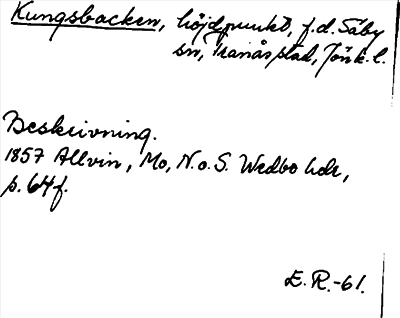 Kungsbacken, höjdpunkt, f.d. Säby
sn, Tranås stad, Jönk. l.
Beskrivning.
1857 Allvin, Mo, N. o. S. Wedbo hdr,
p. 64 f.
E. R. -61.